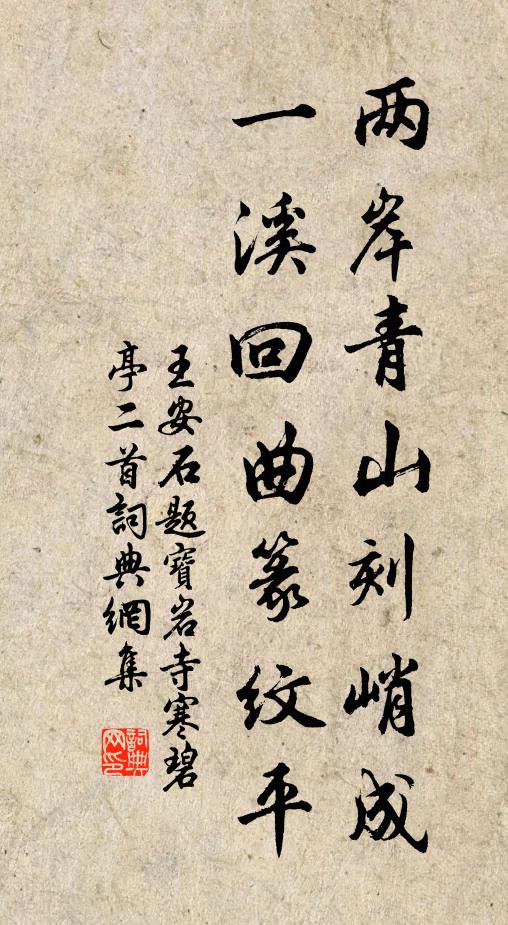 两岸青山刻峭成
一溪回曲篆纹平
王安石题寶岩寺寒碧
亭二首詞典網集
詞典网印